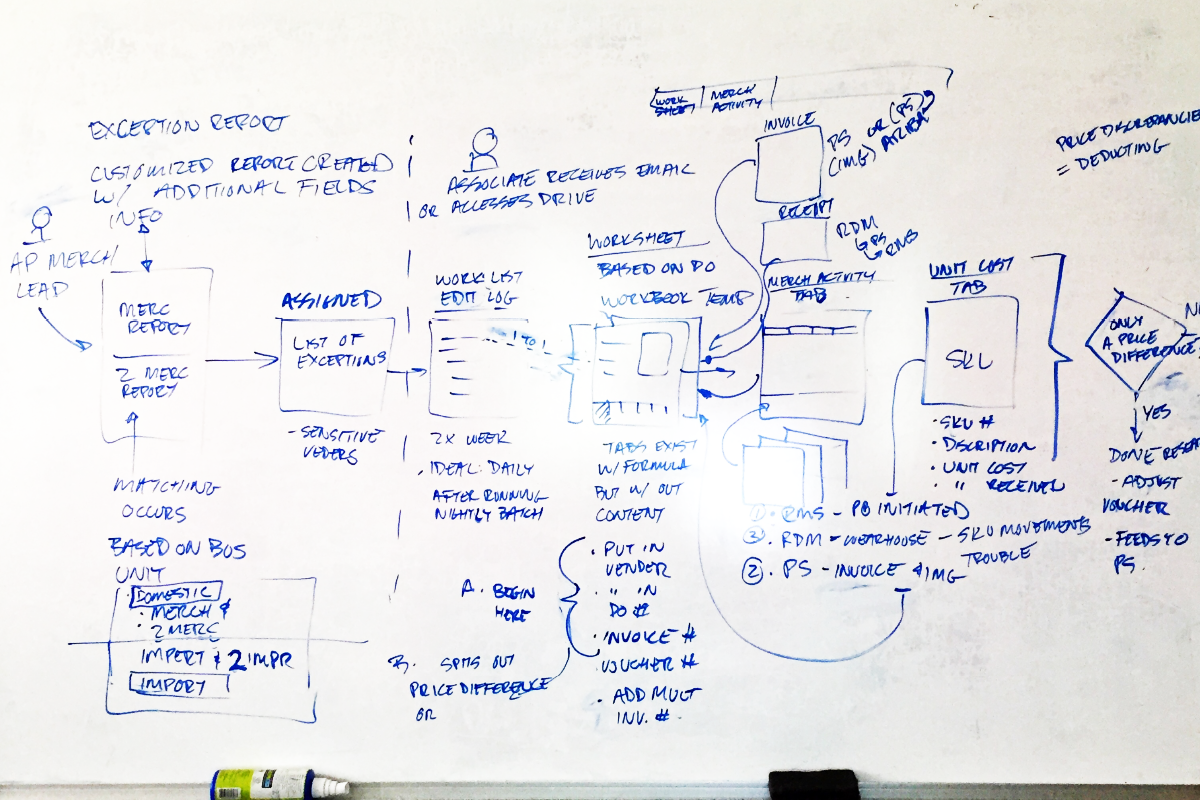 EXCEPTION REPORT
CUSTOMIZED REPORT CREATED
W/ ADDITIONAL FIELDS
INFO
AP MERCH
LEAD
MERC
REPORT
2 MERC
REPORT
MATCHING
OCCURS
BASED ON BUS
UNIT
· DOMESTIC
· MERCH &
· 2 MERC
IMPERT & 2 IMPR
IMPORT
ASSIGNED
LIST OF
EXCEPTIONS
- SENSITIVE
VEDERS
ASSOCIATE RECEIVES EMAIL
OR ACCESSES DRIVE
WORK LIST
EDIT LOG
1 TO 1
2X WEEK
· IDEAL: DAILY
AFTER RUNNING
NIGHTLY BATCH
A. BEGIN
HERE
B. SPITS OUT
PRICE DIFFERENCE
OR
WORKSHEET
BASED ON DO
WORKBOOK TEMP
TABS EXIST
W/ FORMULA
BUT W/ OUT
CONTENT
· PUT IN
VENDER
· " IN
DO #
· INVOICE #
VOUCHER #
· ADD MULT
INV. #
WORK
SHEET
MERCH
ACTIVITY
INVOICE
PS OR (PS)
(IMG) ARIBA
RECEIPT
RDM
PS
RMS
MERCH ACTIVITY
TAB
① · RMS - PO INITIATED
③ · RDM - WEARHOUSE - SKU MOVEMENTS
TROUBLE
② · PS - INVOICE & IMG
UNIT COST
TAB
SKU
· SKU #
· DISCRIPTION
· UNIT COST
· " RECEIVED
PRICE DISCREPANCIE
= DEDUCTING
ONLY
A PRICE
DIFFERENCE
YES
DONE RESEA
- ADJUST
VOUCHER
- FEEDS TO
PS.